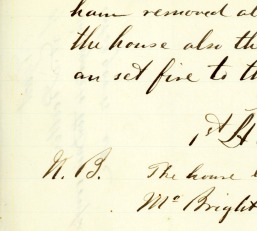 ham removed al
the house also the
an set fire to th
1st H
N. B. The house
Mc Bright